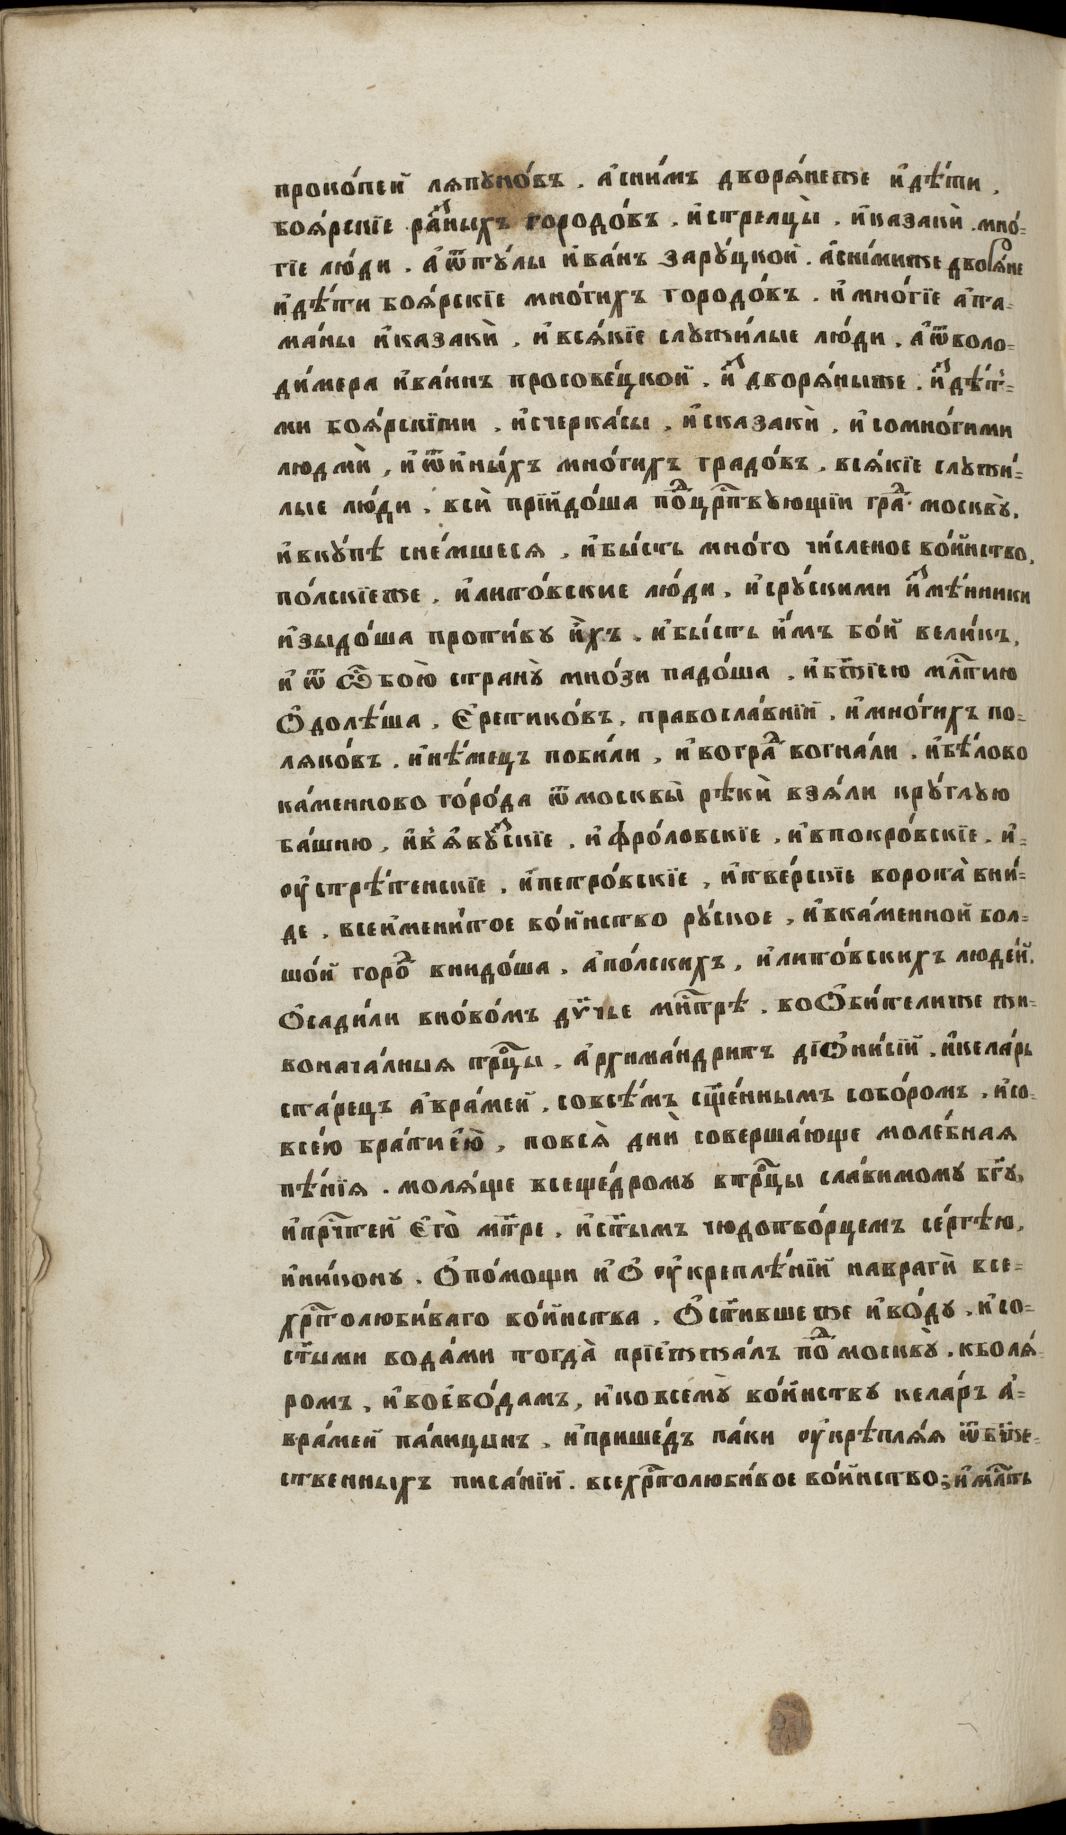 проко́пей ляпуно́въ . а҆сни́мъ дворя́нежѐ и҆дѣ́ти .
боя́рскїе ра́ꙁныхъ городо́въ . и҆стрелцы̀ . и҆казакѝ . мно́-
гїе лю́ди . а҆ѿтꙋ́лы и҆ва́нъ зарꙋ́цкой . а҆сни́мижѐ дворя́не
и҆дѣ́ти боя́рскїе мно́гихъ городо́въ . и҆мно́гїе а҆та-
ма́ны и҆казакѝ , и҆вся́кїе слꙋжи́лые лю́ди , а҆ѿволо-
ди́мера и҆ва́нъ просове́цкой , и҆з̾дворя́ныже . и҆з̾дѣ́т-
ми боя́рскїми , и҆счерка́сы , и҆сказакѝ , и҆сомно́гими
людмѝ , и҆ѿи҆ны́хъ мно́гихъ градо́въ . вся́кїе слꙋжи́-
лые лю́ди . всѝ прїйдо́ша по́дцр҇твꙋющїи гра́д москвꙋ̀ .
и҆вкꙋ́пѣ сне́мшеся , и҆бы́сть мно́го чи́сленое во́йнство ,
по́лскїеже , и҆лито́вские лю́ди , и҆рꙋ́скими и҆зъмѣ́нники
и҆зыдо́ша проти́вꙋ и҆̀хъ . и҆бы́сть и҆̀мъ бо́й вели́къ ,
и҆ ѿ ѻ҆бою̀ странꙋ̀ мно́зи падо́ша , и҆бж҃їею млⷭ҇тию
ѻ҆долѣ́ша , є҆ретико́въ , правосла́внїй , и҆мно́гихъ по-
ляко́въ . и҆нѣ́мецъ поби́ли , и҆вогра́д вогна́ли . и҆бѣ́лово
ка́менново го́рода ѿмосквы̀ рѣкѝ взя́ли крꙋ́глꙋю
ба́шню , и҆в̾ꙗ҆вꙋ́зскїе , и҆фро́ловскїе , и҆впокро́вскїе . и҆-
ᲂу҆стрѣ́тенскїе , и҆петро́вскїе , и҆тве́рскїеворота̀ вни́-
де , всеи҆мени́тое во́йнство рꙋ́ское , и҆вка́менной бол-
шо́й горо́д внидо́ша , а҆по́лскихъ , и҆лито́вскихъ люде́й ,
ѻ҆сади́ли вно́вомъ дѣ́вчье мн҇трѣ . воѻ҆би́телиже жи-
вонача́лныя трⷪ҇цы , а҆рхима́ндритъ дїѻ҆ни́сїй , и҆кела́рь
ста́рецъ а҆вра́мей , совсѣ́мъ сщ҃е́ннымъ собо́ромъ , и҆со-
все́ю бра́тиею̀ , повся̀ днѝ соверша́юще моле́бная
пѣ́нїя . моля́ще всеще́дромꙋ втрⷪ҇цы сла́вимомꙋ бг҃ꙋ ,
и҆прⷱ҇тей є҆го̀ мт҃ре , и҆ст҃ымъ чюдотво́рцемъ се́ргѣю ,
и҆ни́конꙋ . ѻ҆по́мощи и҆ ѻ҆ ᲂу҆креплѣ́нїй навраги̇̀ все-
хрⷭ҇толюби́ваго во́йнства , ѻ҆ст҃и́вшеже и҆во́дꙋ , и҆со-
ст҃ыми вода́ми тогда̀ прїе҆жжа́лъ по́д москвꙋ̀ . кболя́-
ромъ , и҆воево́дамъ , и҆ковсемꙋ̀ во́йнствꙋ кела́рь а҆-
вра́мей па́лицынъ , и҆прише́дъ па́ки ᲂу҆крѣпля́я ѿбж҃е-
ственныхъ писа́нїй . всехрⷭ҇толюби́вое во́йнство ; и҆млⷭ҇ть